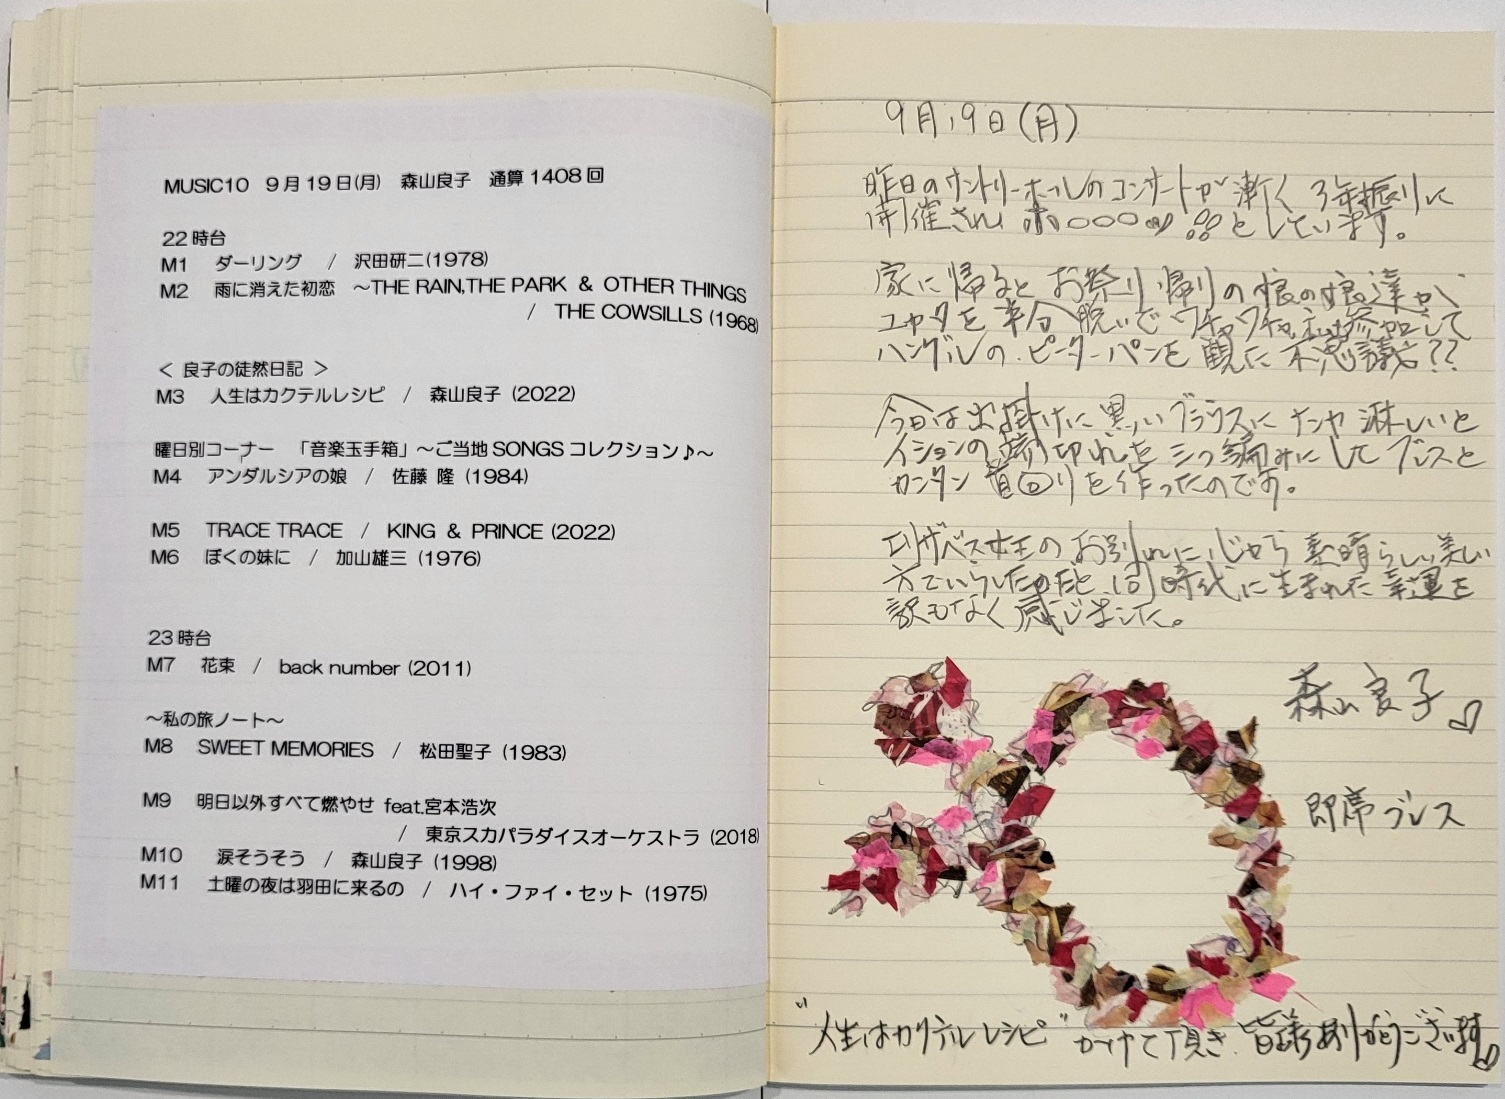 MUSIC10 9月19日(月) 森山良子 通算1408回
22時台
M1 ダーリング / 沢田研二(1978)
M2 雨に消えた初恋 ～THE RAIN,THE PARK & OTHER THINGS
/ THE COWSILLS (1968)
＜ 良子の徒然日記 ＞
M3 人生はカクテルレシピ / 森山良子 (2022)
曜日別コーナー 「音楽玉手箱」～ご当地SONGSコレクション♪～
M4 アンダルシアの娘 / 佐藤 隆 (1984)
M5 TRACE TRACE / KING & PRINCE (2022)
M6 ぼくの妹に / 加山雄三 (1976)
23時台
M7 花束 / back number (2011)
～私の旅ノート～
M8 SWEET MEMORIES / 松田聖子 (1983)
M9 明日以外すべて燃やせ feat.宮本浩次
/ 東京スカパラダイスオーケストラ (2018)
M10 涙そうそう / 森山良子 (1998)
M11 土曜の夜は羽田に来るの / ハイ・ファイ・セット (1975)
9月19日(月)
昨日のサントリーホールのコンサートが漸く3年振りに
開催され ホ○○○ッ としています。
家に帰ると お祭り帰りの娘の娘達が
ユカタを半分脱いでワチャワチャ 参加して
ハングルの ピーターパンを観た 不思議??
今日は出掛けに黒いブラウスに ナンヤ淋しいと
の 切れを三つ編みにしてブレスと
カンタン首回りを作ったのです。
エリザベス女王のお別れに、心から素晴らしい美しい
方でいらしたのだと、同時代に生まれた幸運を
訳もなく感じました。
森山良子
即席ブレス
"人生はカクテルレシピ" かけて頂き、皆様ありがとうございます